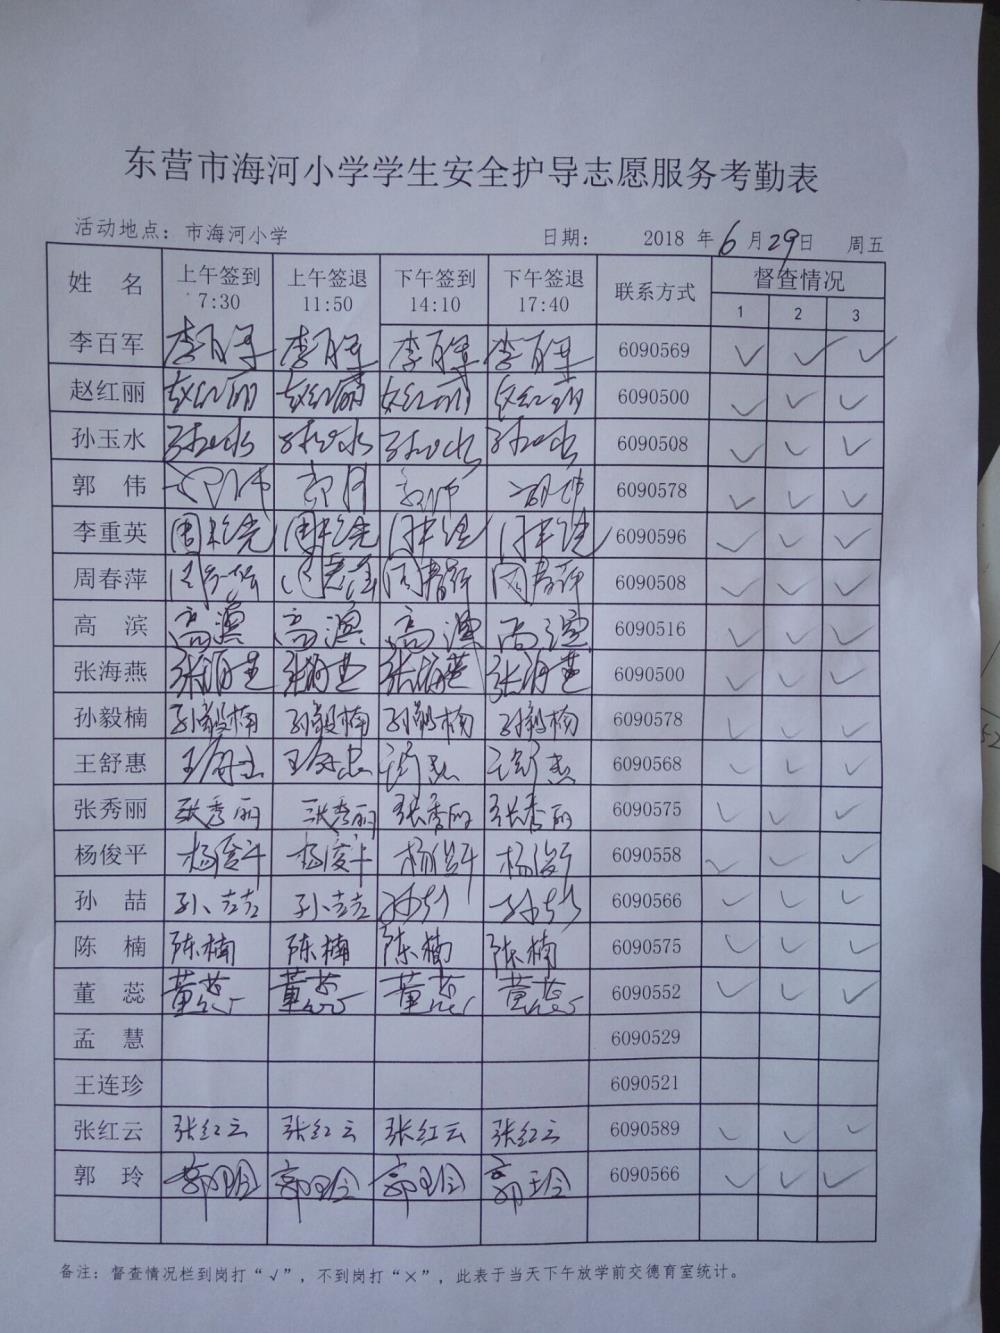 东营市海河小学学生安全护导志愿服务考勤表
活动地点：市海河小学 日期： 2018 年 6 月 29 日 周五
姓 名 上午签到 7:30 上午签退 11:50 下午签到 14:10 下午签退 17:40 联系方式 督查情况
1 2 3
李百军 李百军 李百军 李百军 李百军 6090569 ✓ ✓ ✓
赵红丽 赵红丽 赵红丽 赵红丽 赵红丽 6090500 ✓ ✓ ✓
孙玉水 孙玉水 孙玉水 孙玉水 孙玉水 6090508 ✓ ✓ ✓
郭 伟 6090578 ✓ ✓ ✓
李重英 6090596 ✓ ✓ ✓
周春萍 周春萍 周春萍 周春萍 周春萍 6090508 ✓ ✓ ✓
高 滨 高滨 高滨 高滨 高滨 6090516 ✓ ✓ ✓
张海燕 张海燕 张海燕 张海燕 张海燕 6090500 ✓ ✓ ✓
孙毅楠 孙毅楠 孙毅楠 孙毅楠 孙毅楠 6090578 ✓ ✓ ✓
王舒惠 6090568 ✓ ✓ ✓
张秀丽 张秀丽 张秀丽 张秀丽 张秀丽 6090575 ✓ ✓ ✓
杨俊平 杨俊平 杨俊平 杨俊平 杨俊平 6090558 ✓ ✓ ✓
孙 喆 孙喆 孙喆 孙喆 孙喆 6090566 ✓ ✓ ✓
陈 楠 陈楠 陈楠 陈楠 陈楠 6090575 ✓ ✓ ✓
董 蕊 董蕊 董蕊 董蕊 董蕊 6090552 ✓ ✓ ✓
孟 慧 6090529
王连珍 6090521
张红云 张红云 张红云 张红云 张红云 6090589 ✓ ✓ ✓
郭 玲 郭玲 郭玲 郭玲 郭玲 6090566 ✓ ✓ ✓
备注：督查情况栏到岗打“√”，不到岗打“×”，此表于当天下午放学前交德育室统计。